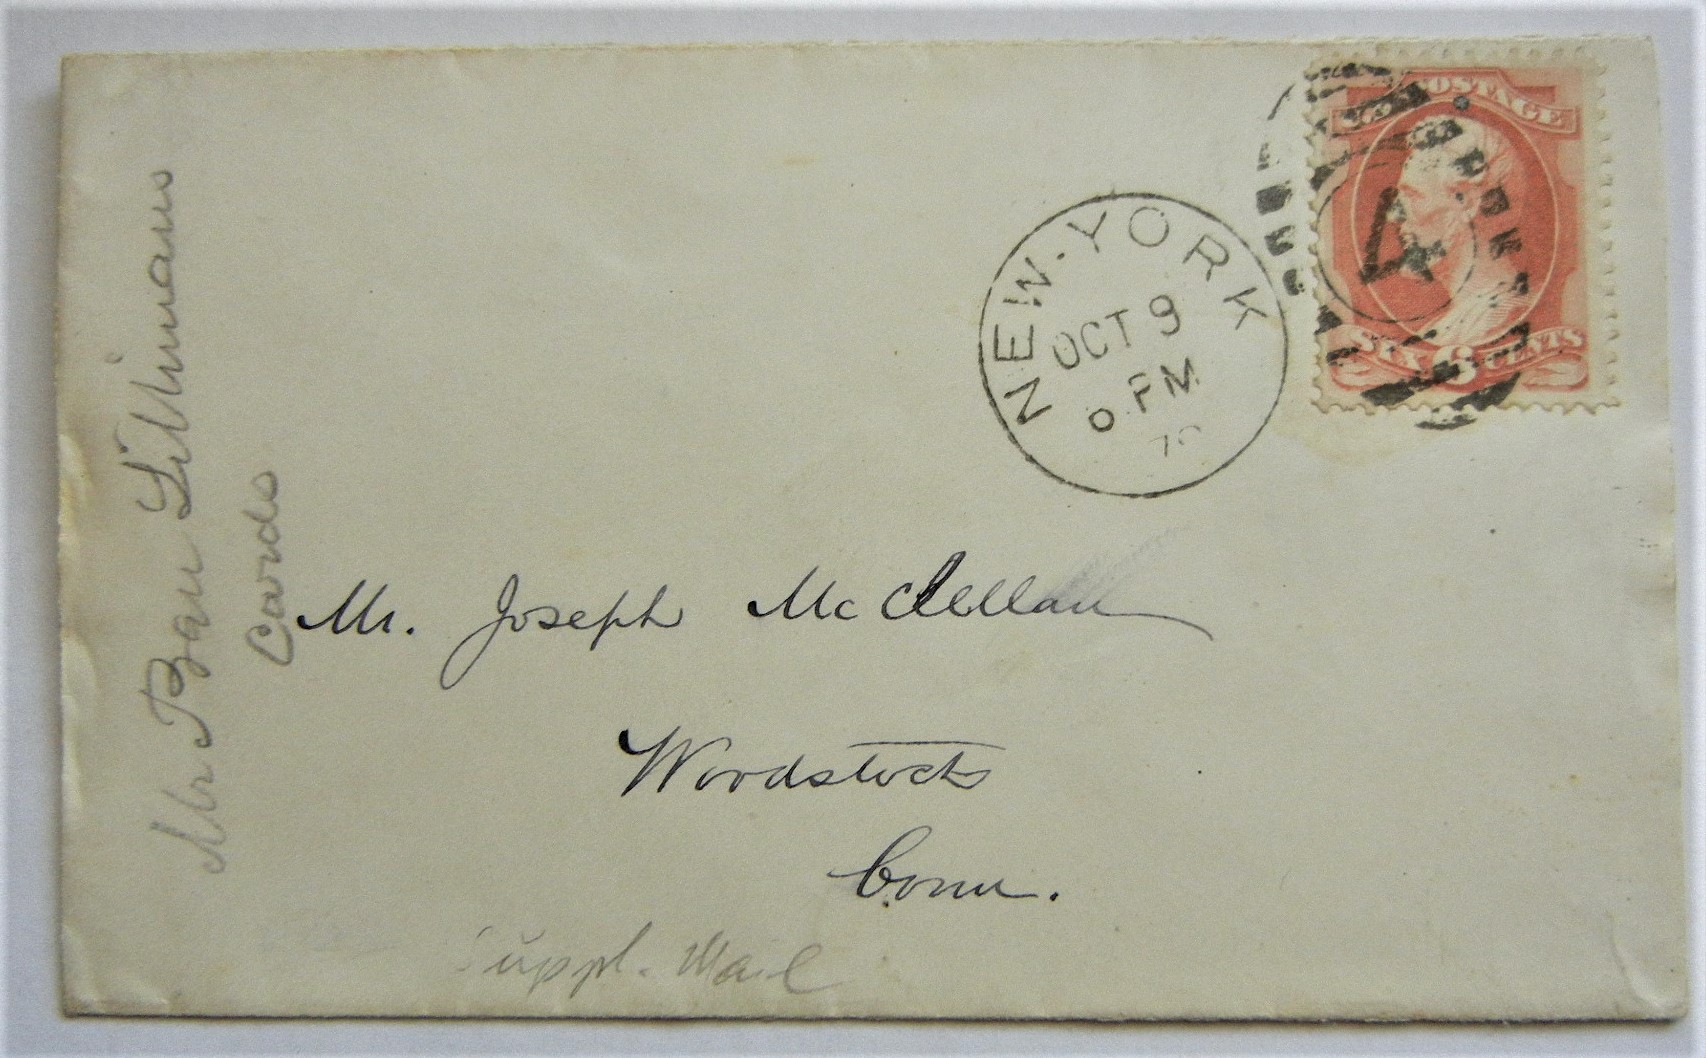 POSTAGE
4
SIX 6 CENTS
NEW-YORK
OCT 9
6 PM
Mr.
Cards
Mr. Joseph McClellan
Woodstock
Conn.
Suppl. Mail